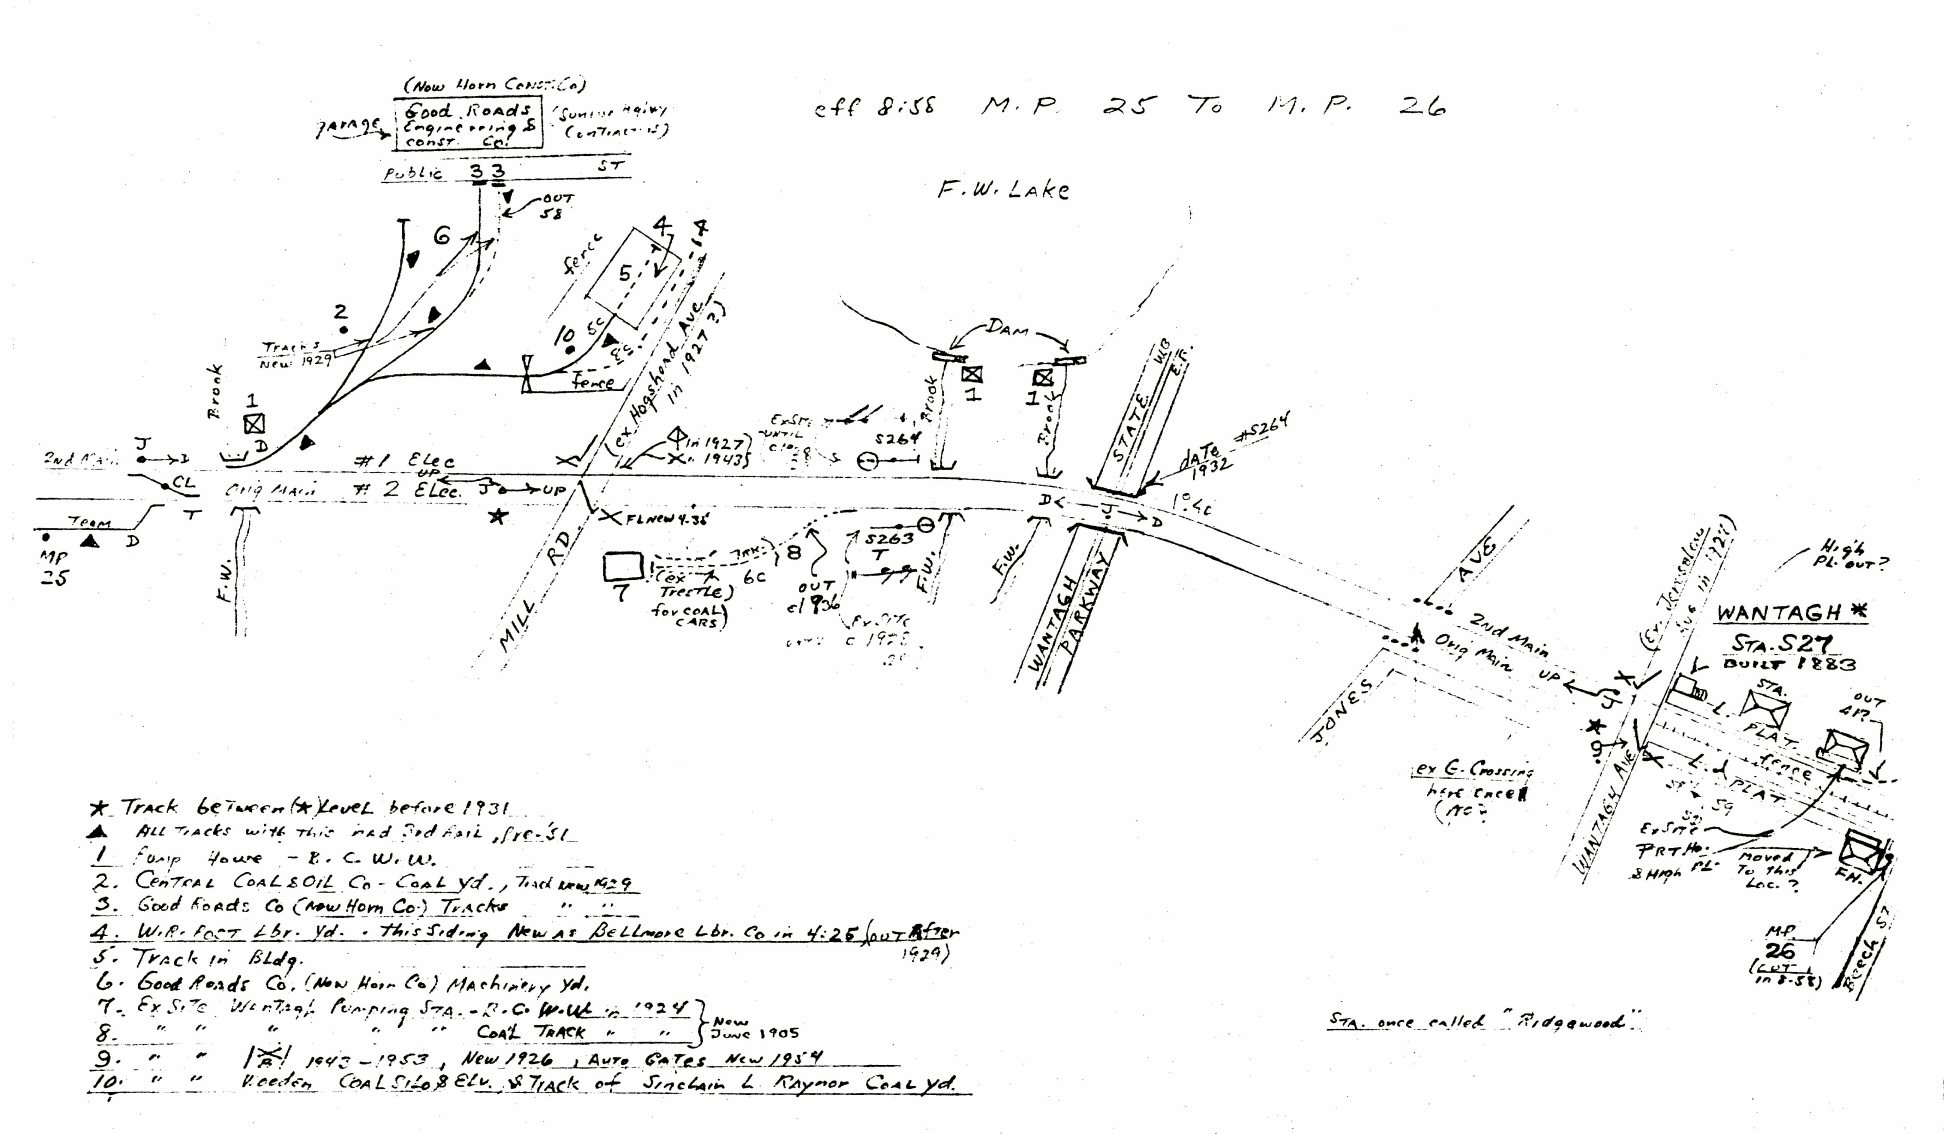 (Now Horn Const. Co)
Good Roads
Engineering &
Const. Co.
garage
Public ST
3 3
OUT
58
eff 8:58 M.P. 25 To M.P. 26
F.W. Lake
6
4
4
5
fence
2
10
5c
Tracks
New 1929
fence
(ex Hogshead Ave
in 1927?)
Brook
1
D
DAM
Brook
1
1
Brook
STATE
WB
E.B.
Ex Site
UNTIL
S264
#S264
date
1932
in 1927
" 1943
J
D
2nd Main
CL
#1 Elec
UP
Orig Main
#2 Elec.
J
UP
T
Team
D
MP
25
F.W.
MILL RD
FL New 4-35
7
(ex
Trestle)
for COAL
CARS)
TRK.
8
6c
OUT
c1936
S263
T
Ex Site
c 1928
F.W.
F.W.
D
J
D
1° 4c
WANTAGH
PARKWAY
AVE
JONES
2nd Main
Orig Main
UP
(Ex. Jerusalem
Ave in 1927)
High
PL. OUT?
WANTAGH *
STA. S27
BUILT 1883
STA.
OUT
41?
L. PLAT.
fence
L.d PLAT
9
WANTAGH AVE
ex G. Crossing
here once
Ex Site
PRT Ho.
& High PL.
Moved
To this
Loc.?
F.H.
MP
26
(CUT
in 8-58)
Beech ST
★ Track between (★) Level before 1931
▲ All Tracks with this had 3rd Rail, pre-'51
1 Pump House - B.C.W.W.
2. Central Coal & Oil Co - Coal yd., Track New 1929
3. Good Roads Co (Now Horn Co.) Tracks " "
4. W.R. Fort Lbr. Yd. - this Siding New as Bellmore Lbr. Co in 4:25 (OUT After
1929)
5. Track in Bldg.
6. Good Roads Co. (Now Horn Co) Machinery Yd.
7. Ex Site Wantagh Pumping STA. - B.C.W.W. in 1924
8. " " " " " COAL TRACK " "
New
June 1905
9. " " 1943-1953, New 1926, Auto Gates New 1954
10. " " Wooden COAL Silo & Elv. & Track of Sinclair L. Raynor Coal yd.
STA. once called "Ridgewood"